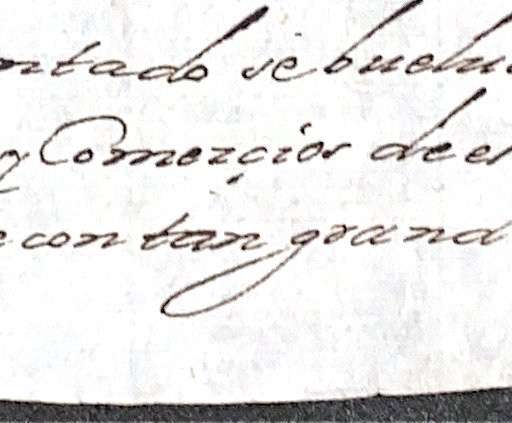 ntado se buelu
y Comerçios de es
e con tan grand